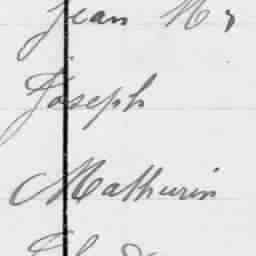 Jean M
Joseph
Mathurin